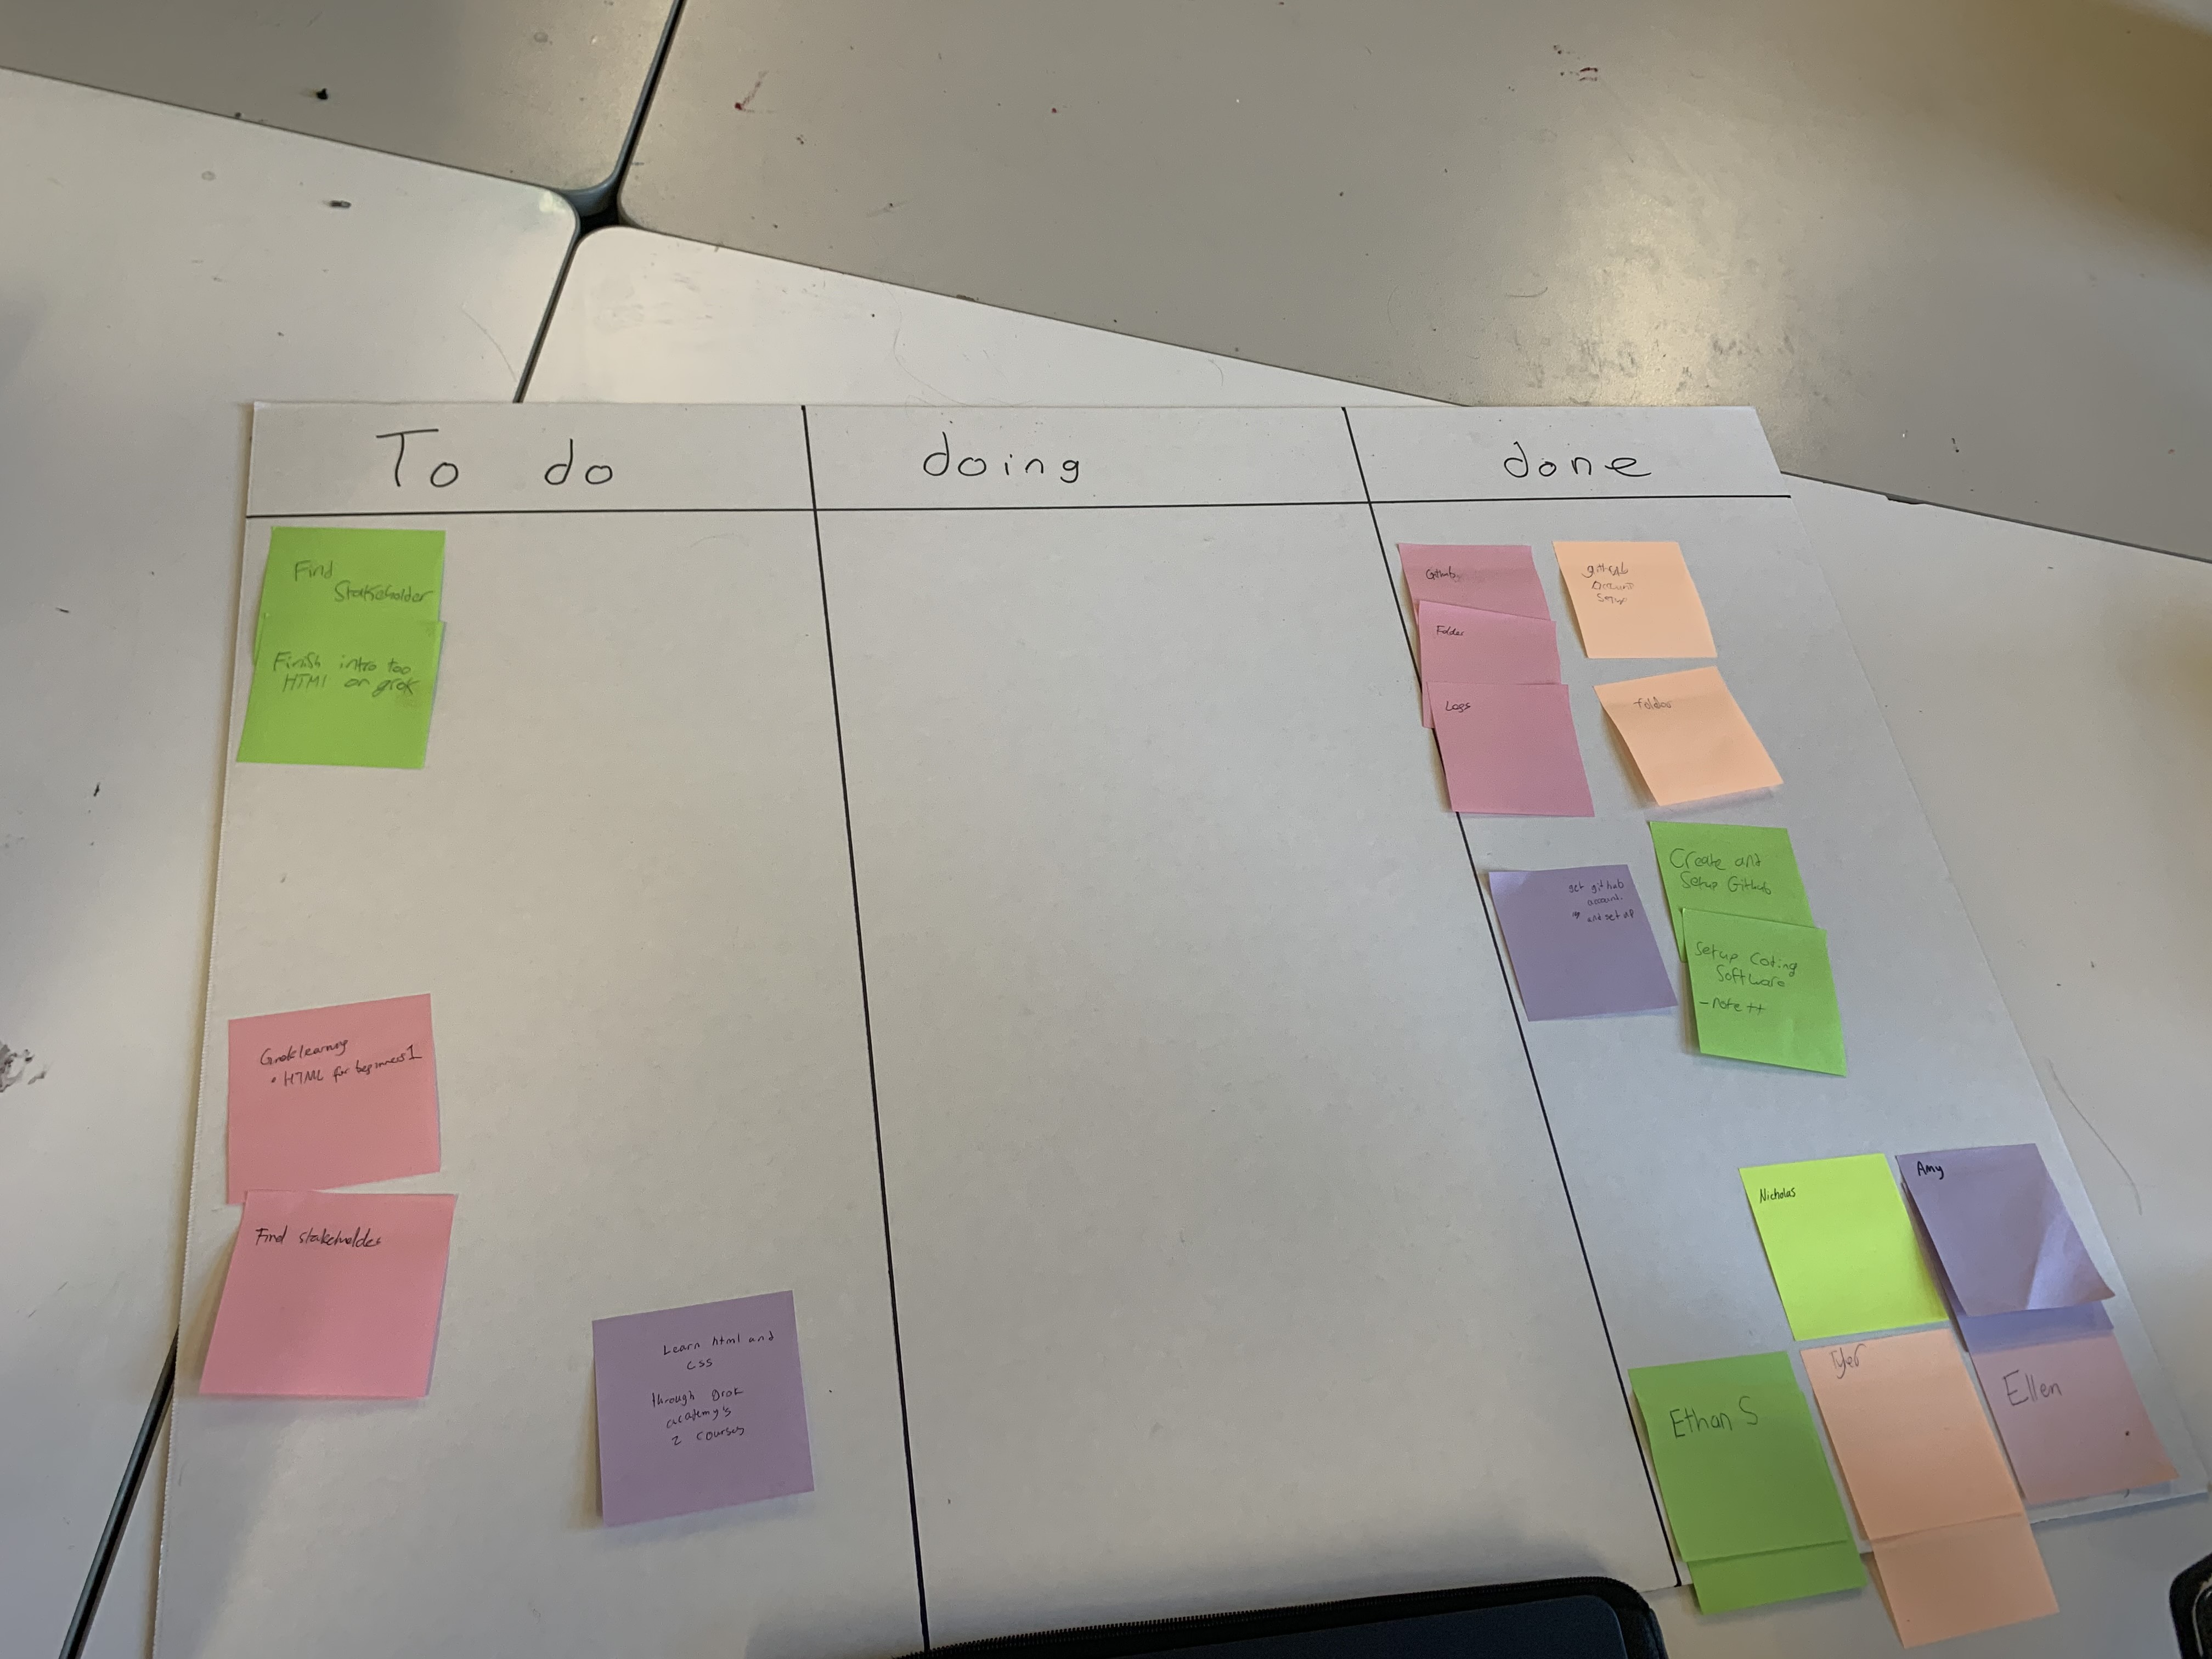 To do
doing
done
Find
Stakeholder
Finish intro too
HTMl on grok
Groklearning
• HTML for beginners 1
Find stakeholder
Learn html and
css
through grok
academy's
2 courses
Github
Folder
Logs
github
account
setup
folder
set github
account.
and set up
Create and
Setup Github
Setup Coding
Software
- note ++
Nicholas
Amy
Ethan S
Tyler
Ellen